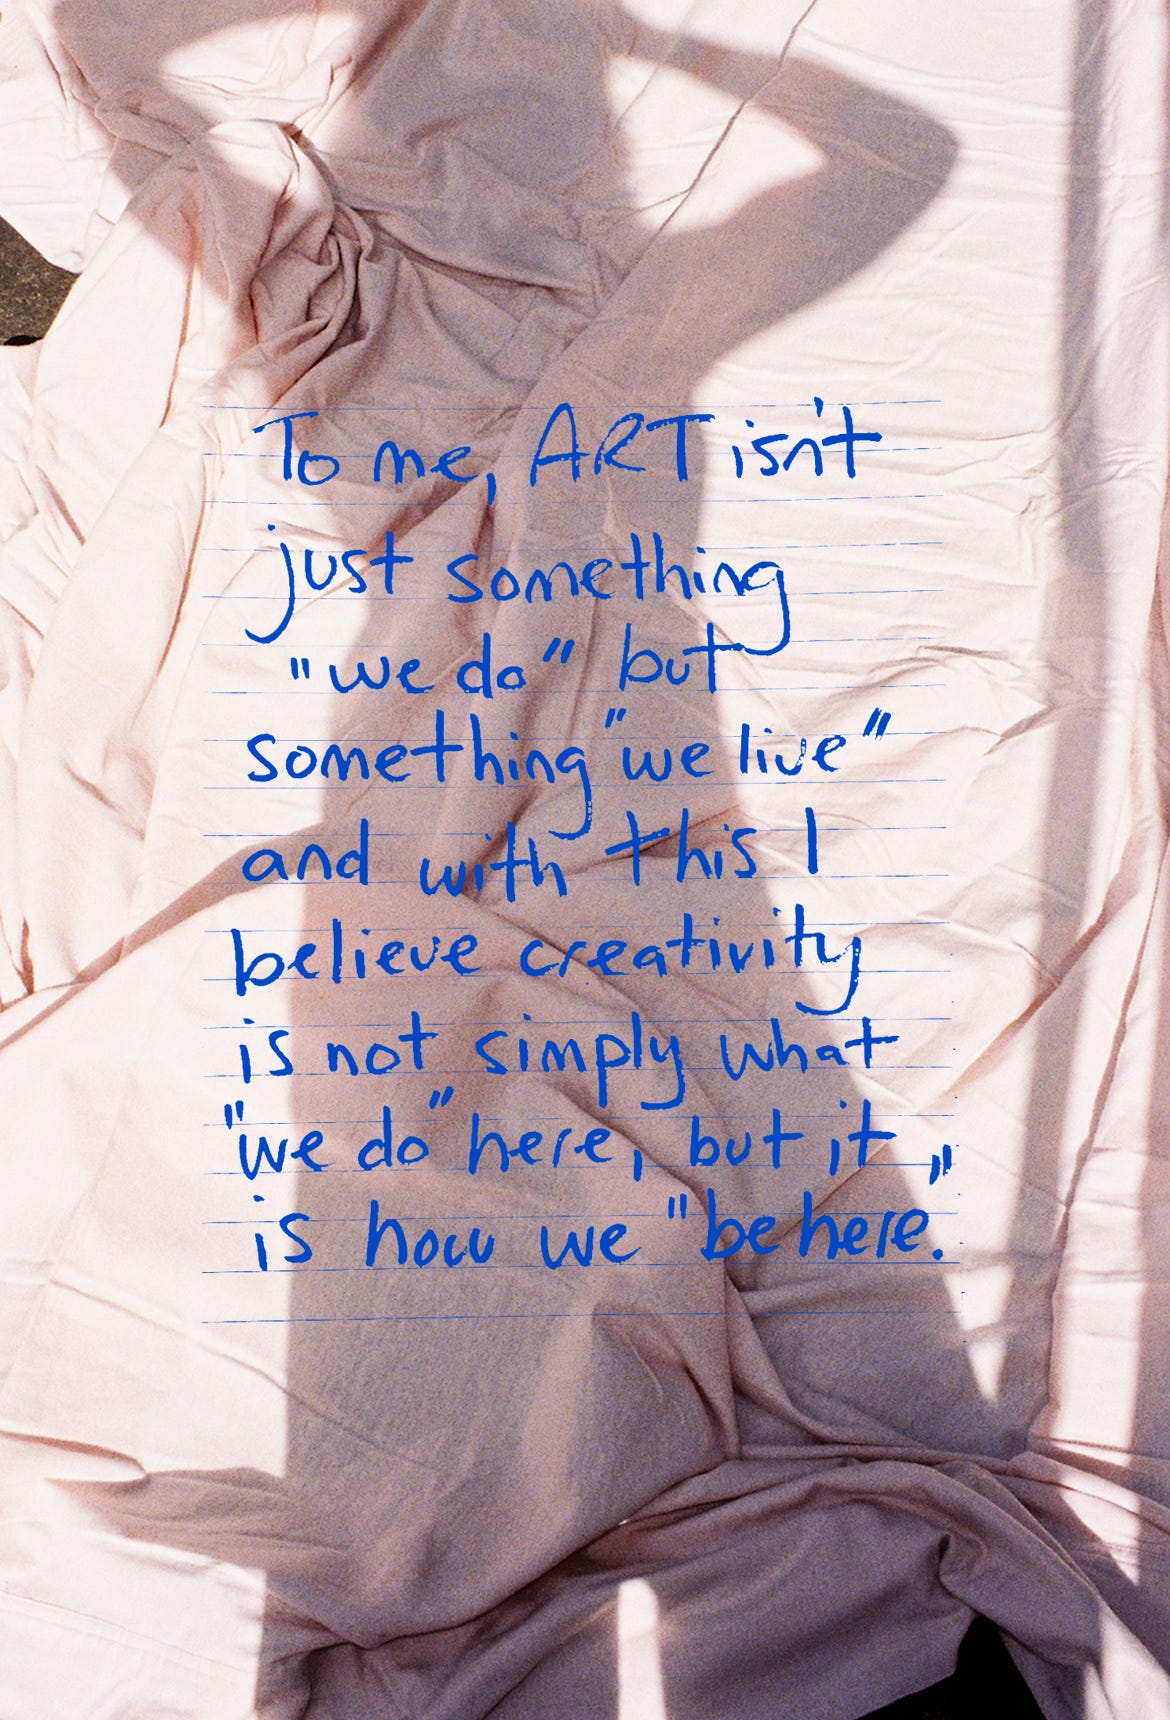 To me, ART isn't
just something
"we do" but
something "we live"
and with this I
believe creativity
is not simply what
"we do" here, but it
is how we "be here."